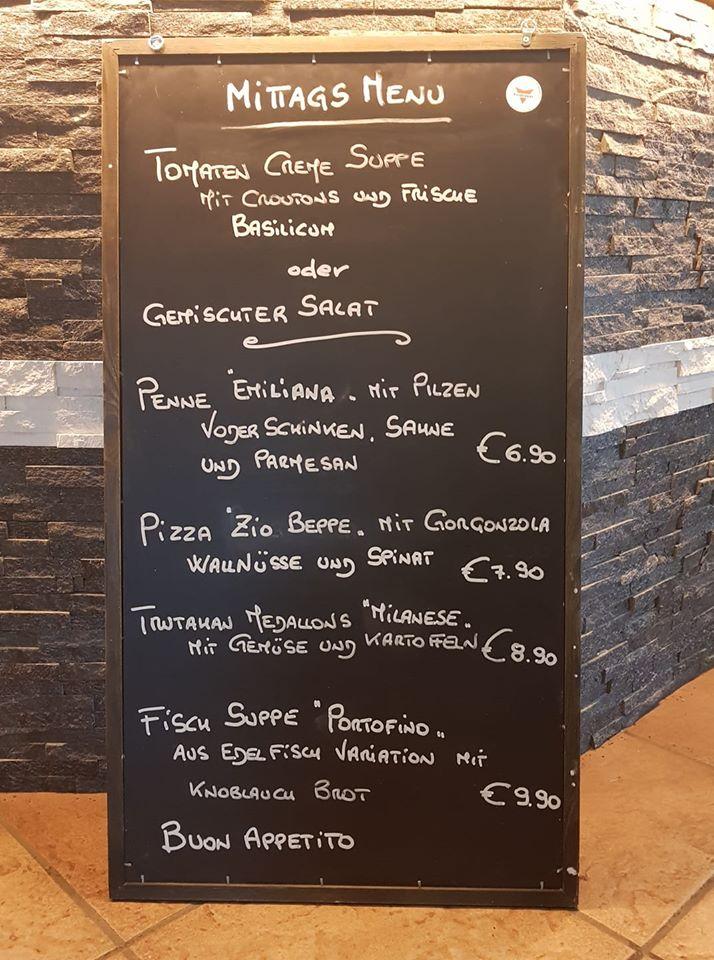 MITTAGS MENU
TOMATEN CREME SUPPE
MIT CROUTONS UND FRISCHE
BASILICUM
oder
GEMISCHTER SALAT
PENNE "EMILIANA" MIT PILZEN
VODERSCHINKEN, SAHNE
UND PARMESAN €6.90
PIZZA "ZIO BEPPE" MIT GORGONZOLA
WALLNÜSSE UND SPINAT €7.90
TRUTAHAN MEDALLONS "MILANESE"
MIT GEMÜSE UND KARTOFFELN €8.90
FISCH SUPPE "PORTOFINO"
AUS EDELFISCH VARIATION MIT
KNOBLAUCH BROT €9.90
BUON APPETITO